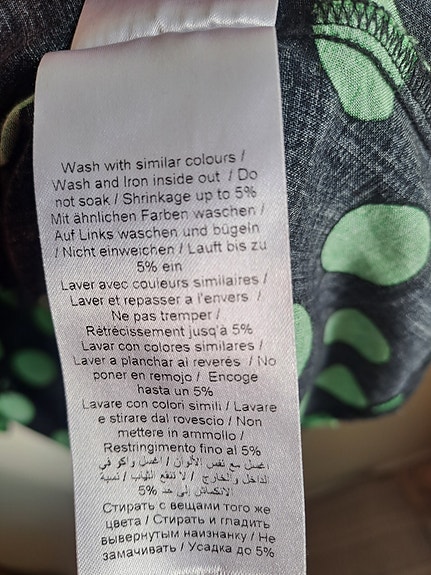 Wash with similar colours /
Wash and Iron inside out / Do
not soak / Shrinkage up to 5%
Mit ähnlichen Farben waschen /
Auf Links waschen und bügeln
/ Nicht einweichen / Lauft bis zu
5% ein
Laver avec couleurs similaires /
Laver et repasser a l'envers /
Ne pas tremper /
Rétrécissement jusqu'à 5%
Lavar con colores similares /
Laver a planchar al reverés / No
poner en remojo / Encoge
hasta un 5%
Lavare con colori simili / Lavare
e stirare dal rovescio / Non
mettere in ammollo /
Restringimento fino al 5%
اغسل مع نفس الألوان / اغسل واكو في
الداخل والخارج / لا تنقع الثياب / نسبة
الانكماش إلى حد 5%
Стирать с вещами того же
цвета / Стирать и гладить
вывернутым наизнанку / Не
замачивать / Усадка до 5%